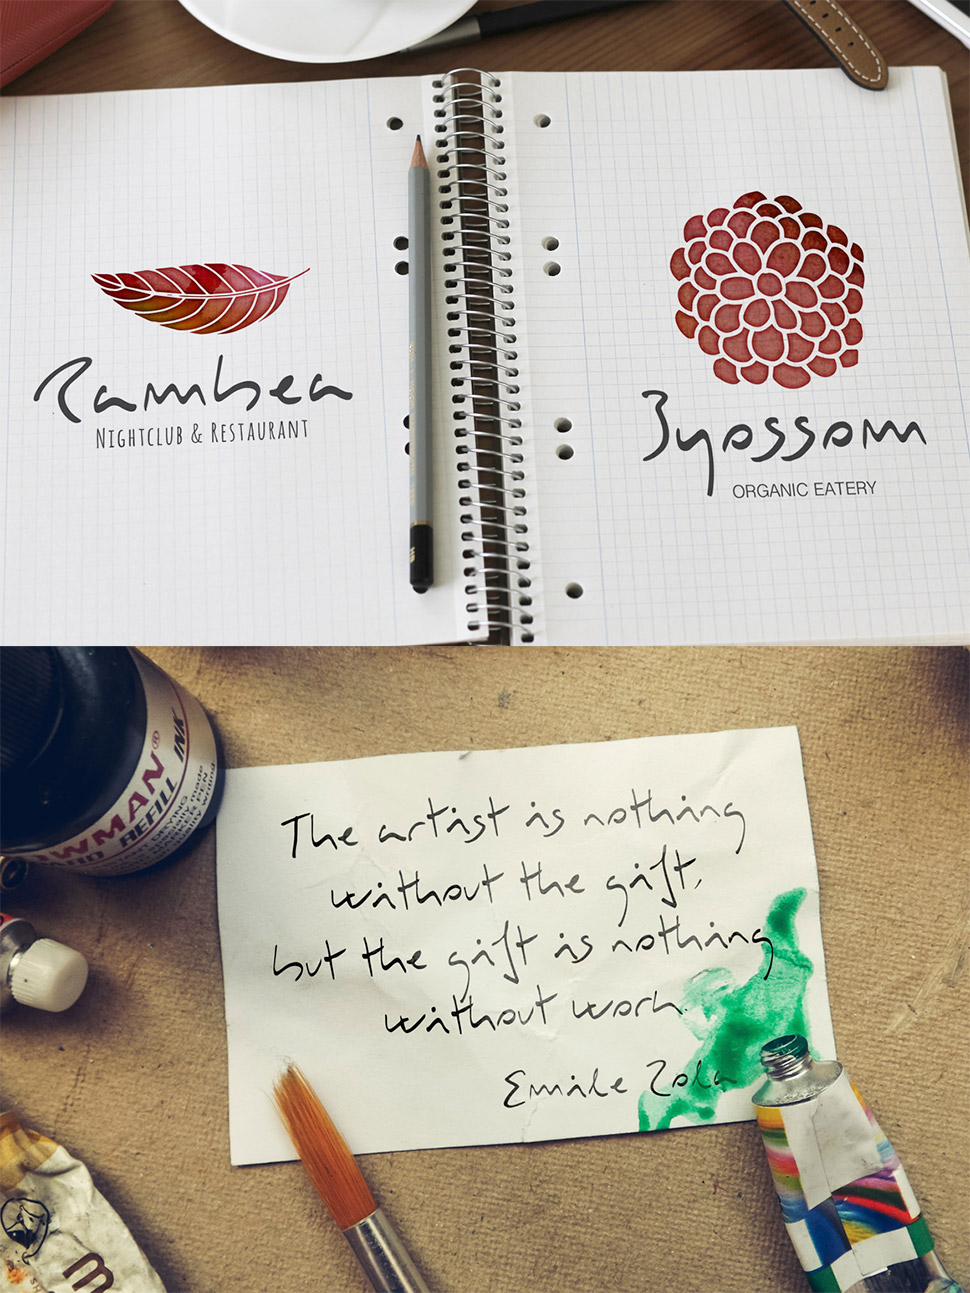 Rambea
NIGHTCLUB & RESTAURANT
Byossom
ORGANIC EATERY
The artist is nothing
without the gift,
but the gift is nothing
without work.
Emile Zola
REFILL INK